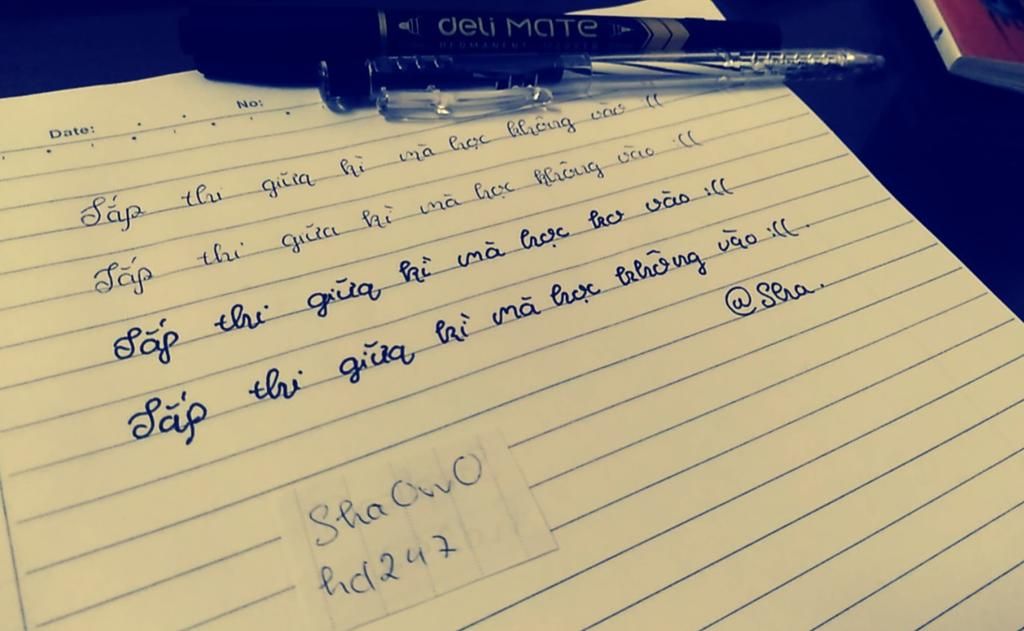 deli MATE
PERMANENT MARKER
Date:
No:
Sắp thi giữa kì mà học không vào :((
Sắp thi giữa kì mà học không vào :((
Sắp thi giữa kì mà học ko vào :((
Sắp thi giữa kì mà học không vào :((.
@Sha.
ShaOwO
hd247